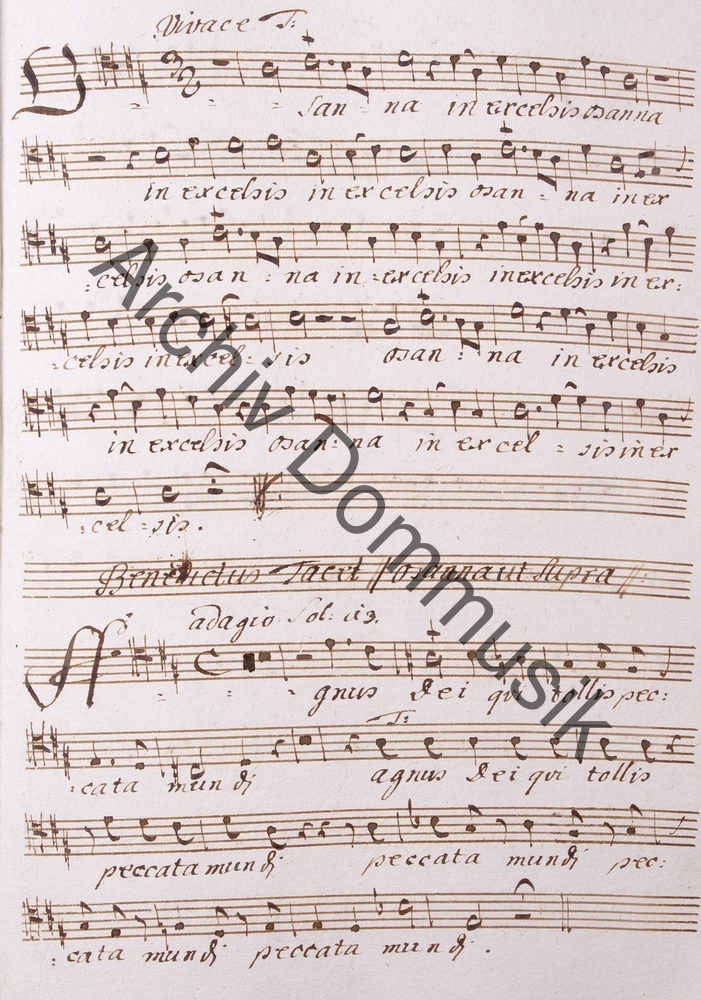 Vivace T:
O - - - san - na in excelsis osanna
in excelsis in excelsis osan - na in ex
- celsis osan - na in - excelsis in excelsis in ex:
- celsis in excel - sis osan - na in excelsis
in excelsis osan - na in excel - sis in ex
- cel - sis.
Benedictus Tacet || osanna ut Supra ||
adagio Sol: a3.
A - - - gnus dei qui tollis pec:
T:
:cata mundi agnus dei qui tollis
peccata mundi peccata mundi pec:
:cata mundi peccata mundi.
Archiv Dommusik